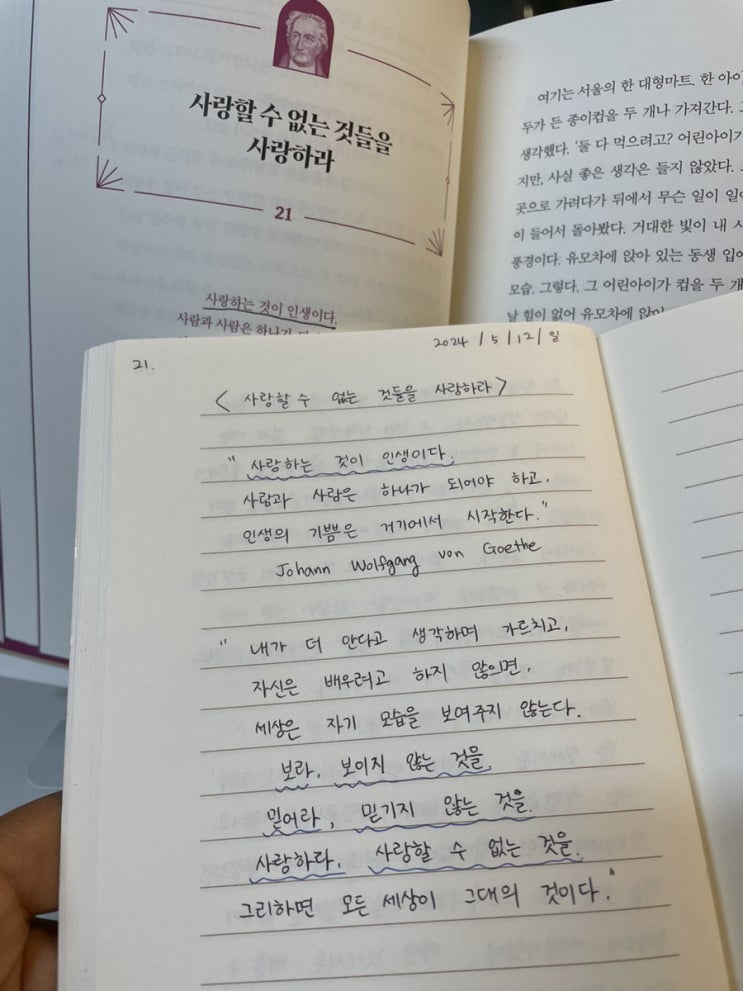 사랑할 수 없는 것들을
사랑하라
21
사랑하는 것이 인생이다.
사람과 사람은 하나가
여기는 서울의 한 대형마트. 한
두가 든 종이컵을 두 개나 가져간다.
생각했다. '둘 다 먹으려고? 어린아이가
지만, 사실 좋은 생각은 들지 않았다.
곳으로 가려다가 뒤에서 무슨 일이
이 들어서 돌아봤다. 거대한 빛이 내
풍경이다. 유모차에 앉아 있는 동생
모습. 그렇다. 그 어린아이가 컵을 두
날 힘이 없어 유모차에
2024 / 5 / 12 / 일
21.
< 사랑할 수 없는 것들을 사랑하라 >
" 사랑하는 것이 인생이다.
사람과 사람은 하나가 되어야 하고,
인생의 기쁨은 거기에서 시작한다."
Johann Wolfgang von Goethe
" 내가 더 안다고 생각하며 가르치고,
자신은 배우려고 하지 않으면,
세상은 자기 모습을 보여주지 않는다.
보라, 보이지 않는 것을.
믿어라, 믿기지 않는 것을.
사랑하라, 사랑할 수 없는 것을.
그리하면 모든 세상이 그대의 것이다."